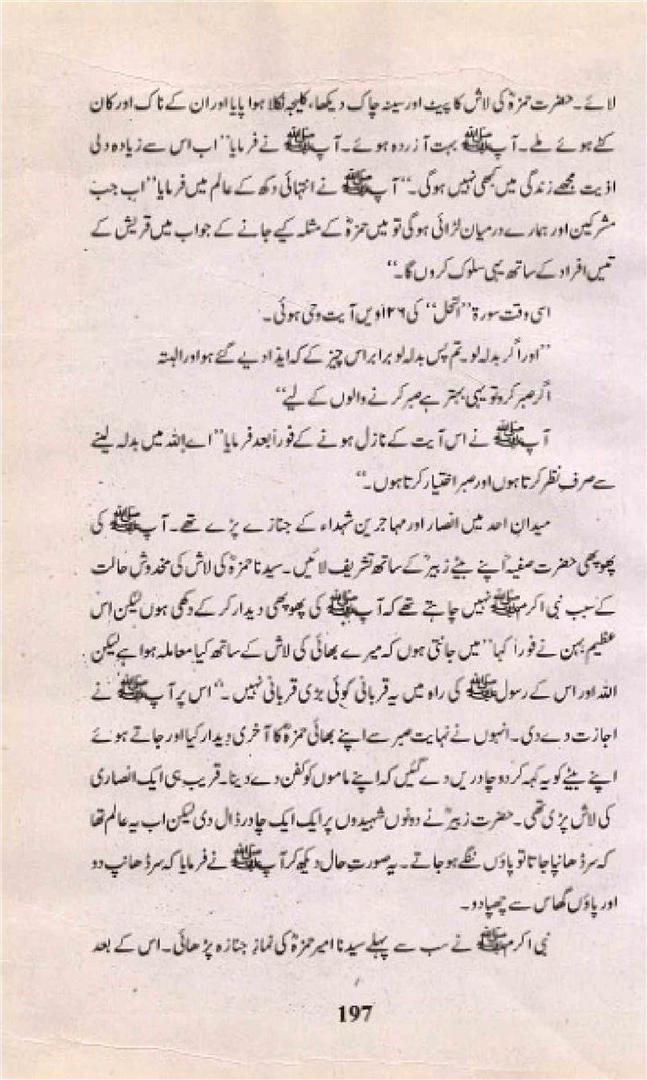 لائے۔ حضرت حمزہؓ کی لاش کا پیٹ اور سینہ چاک دیکھا، کلیجہ نکلا ہوا پایا اور ان کے ناک اور کان
کٹے ہوئے ملے۔ آپ ﷺ بہت آزردہ ہوئے۔ آپ ﷺ نے فرمایا ”اب اس سے زیادہ دلی
اذیت مجھے زندگی میں کبھی نہیں ہوگی۔“ آپ ﷺ نے انتہائی دکھ کے عالم میں فرمایا ”اب جب
مشرکین اور ہمارے درمیان لڑائی ہوگی تو میں حمزہؓ کے مثلہ کیے جانے کے جواب میں قریش کے
تیس افراد کے ساتھ یہی سلوک کروں گا۔“
اسی وقت سورۃ ”النحل“ کی ۱۲۶ویں آیت وحی ہوئی۔
”اور اگر بدلہ لو۔ تم پس بدلہ لو برابر اس چیز کے کہ ایذا دیے گئے ہو اور البتہ
اگر صبر کرو تو یہی بہتر ہے صبر کرنے والوں کے لیے“
آپ ﷺ نے اس آیت کے نازل ہونے کے فوراً بعد فرمایا ”اے اللہ میں بدلہ لینے
سے صرفِ نظر کرتا ہوں اور صبر اختیار کرتا ہوں۔“
میدانِ احد میں انصار اور مہاجرین شہداء کے جنازے پڑے تھے۔ آپ ﷺ کی
پھوپھی حضرت صفیہؓ اپنے بیٹے زبیرؓ کے ساتھ تشریف لائیں۔ سیدنا حمزہؓ کی لاش کی مخدوش حالت
کے سبب نبی اکرم ﷺ نہیں چاہتے تھے کہ آپ ﷺ کی پھوپھی دیدار کر کے دکھی ہوں لیکن اس
عظیم بہن نے فوراً کہا ”میں جانتی ہوں کہ میرے بھائی کی لاش کے ساتھ کیا معاملہ ہوا ہے لیکن
اللہ اور اس کے رسول ﷺ کی راہ میں یہ قربانی کوئی بڑی قربانی نہیں۔“ اس پر آپ ﷺ نے
اجازت دے دی۔ انہوں نے نہایت صبر سے اپنے بھائی حمزہؓ کا آخری دیدار کیا اور جاتے ہوئے
اپنے بیٹے کو یہ کہہ کر دو چادریں دے گئیں کہ اپنے ماموں کو کفن دے دینا۔ قریب ہی ایک انصاری
کی لاش پڑی تھی۔ حضرت زبیرؓ نے دونوں شہیدوں پر ایک ایک چادر ڈال دی لیکن اب یہ عالم تھا
کہ سر ڈھانپا جاتا تو پاؤں ننگے ہو جاتے۔ یہ صورتِ حال دیکھ کر آپ ﷺ نے فرمایا کہ سر ڈھانپ دو
اور پاؤں گھاس سے چھپا دو۔
نبی اکرم ﷺ نے سب سے پہلے سیدنا امیر حمزہؓ کی نمازِ جنازہ پڑھائی۔ اس کے بعد
197